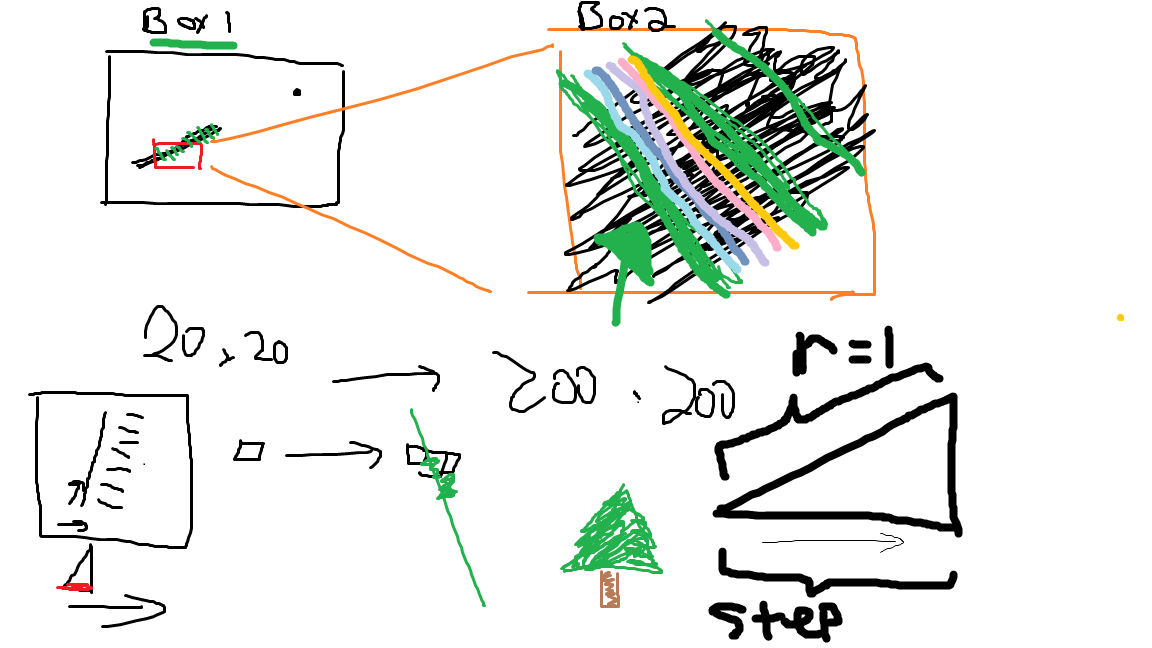 Box 1
Box 2
20 x 20
200 . 200
r = 1
step